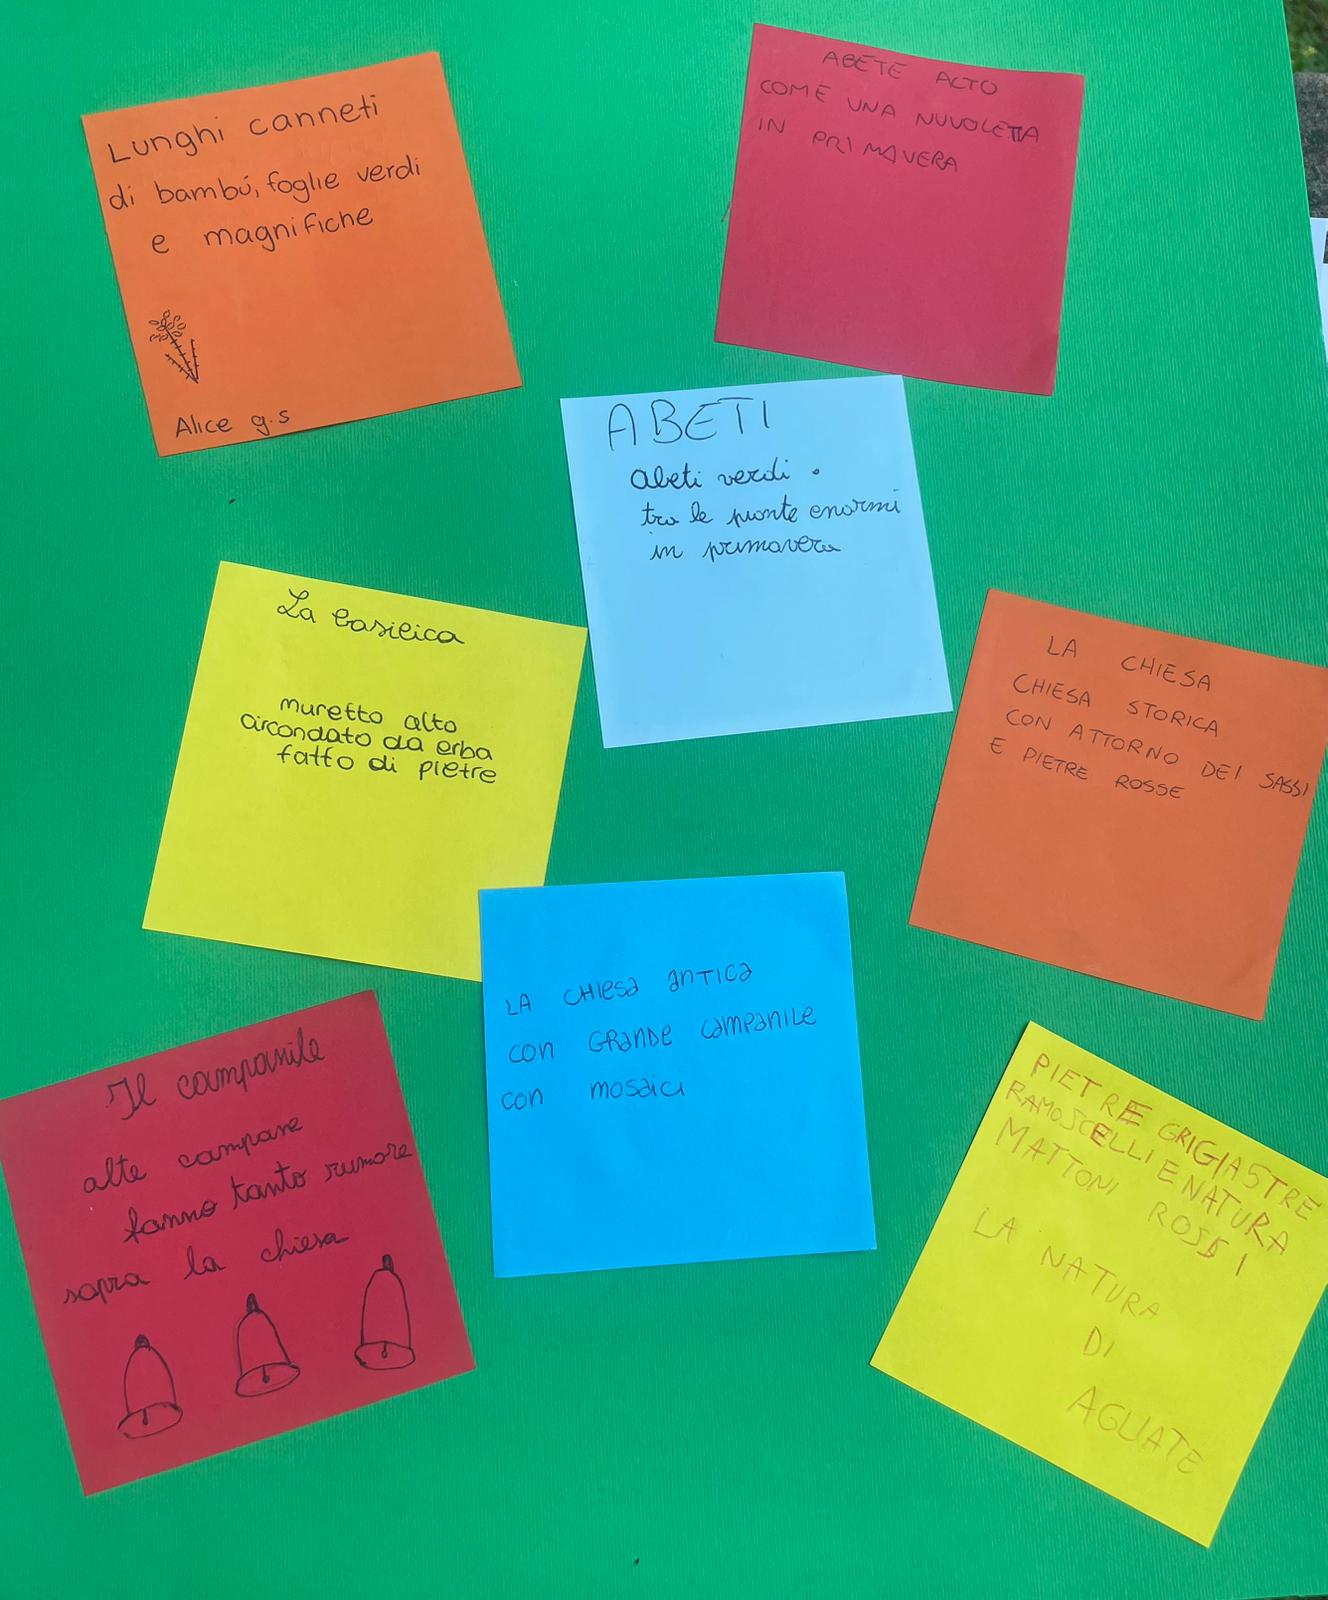 Lunghi canneti
di bambú, foglie verdi
e magnifiche
Alice g.s
ABETE ALTO
COME UNA NUVOLETTA
IN PRIMAVERA
ABETI
Abeti verdi.
tra le piante enormi
in primavera
La basilica
muretto alto
circondato da erba
fatto di pietre
LA CHIESA
CHIESA STORICA
CON ATTORNO DEI SASSI
E PIETRE ROSSE
LA CHIESA ANTICA
CON GRANDE CAMPANILE
CON MOSAICI
Il campanile
alte campane
fanno tanto rumore
sopra la chiesa
PIETRE GRIGIASTRE
RAMOSCELLI E NATURA
MATTONI ROSSI
LA NATURA
DI
AGLIATE